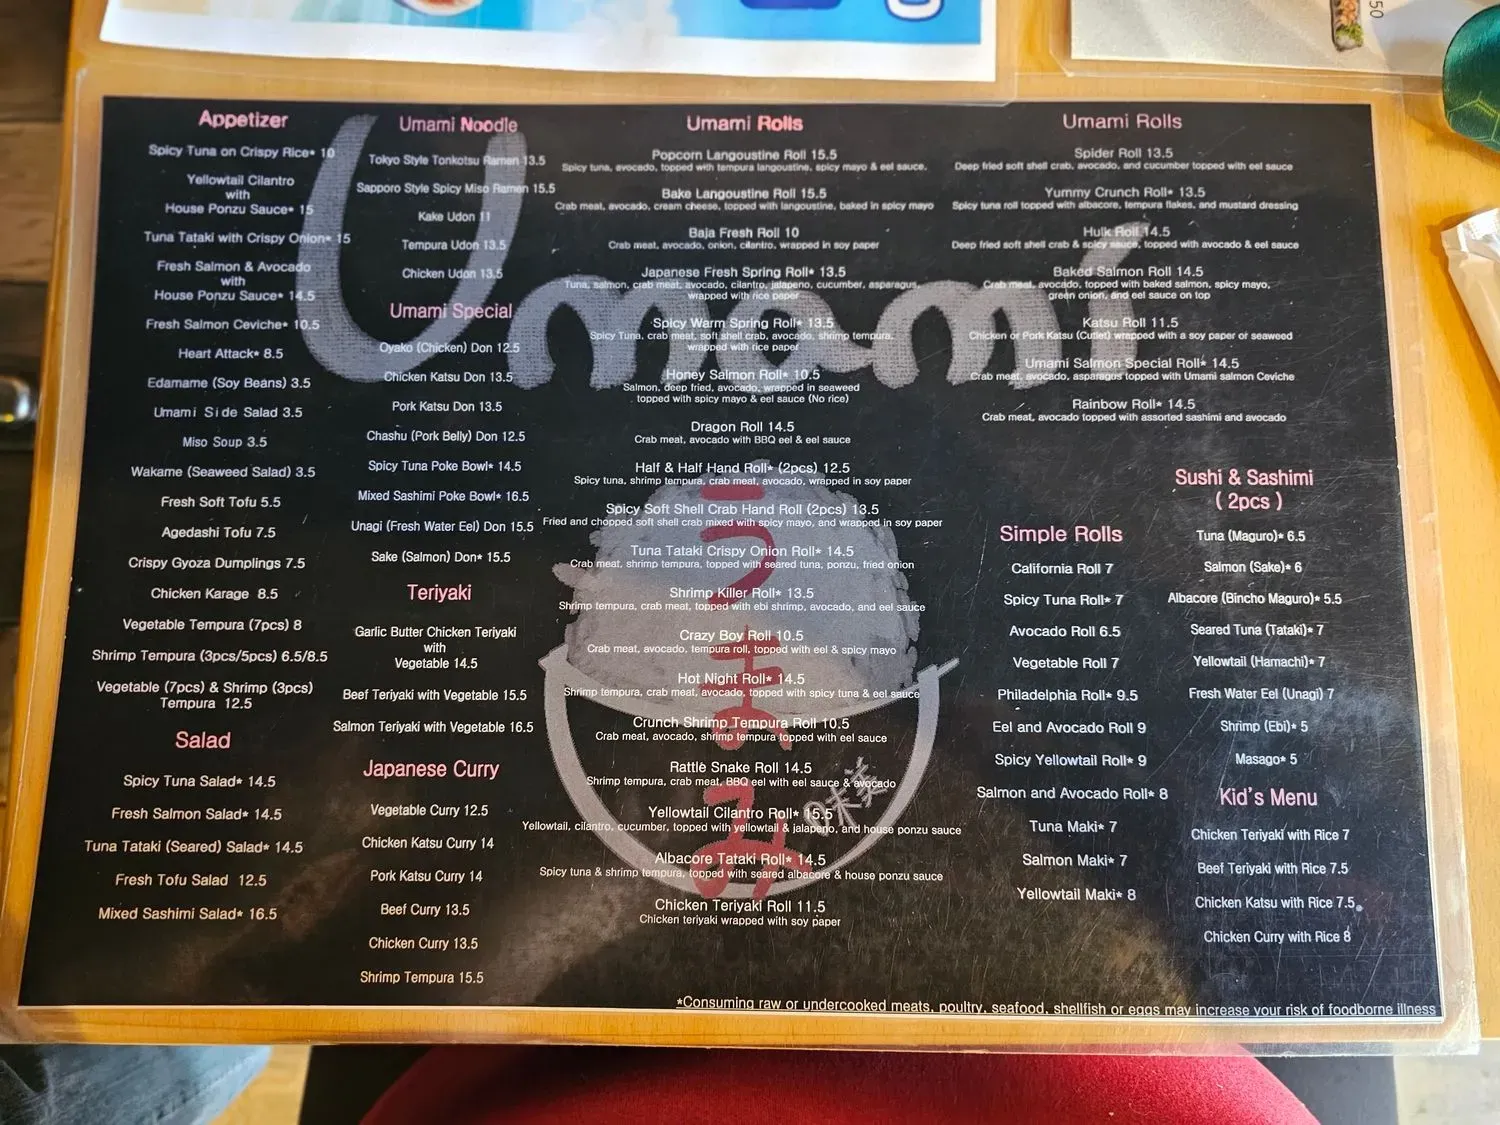 50
Appetizer
Spicy Tuna on Crispy Rice* 10
Yellowtail Cilantro
with
House Ponzu Sauce* 15
Tuna Tataki with Crispy Onion* 15
Fresh Salmon & Avocado
with
House Ponzu Sauce* 14.5
Fresh Salmon Ceviche* 10.5
Heart Attack* 8.5
Edamame (Soy Beans) 3.5
Umami Side Salad 3.5
Miso Soup 3.5
Wakame (Seaweed Salad) 3.5
Fresh Soft Tofu 5.5
Agedashi Tofu 7.5
Crispy Gyoza Dumplings 7.5
Chicken Karage 8.5
Vegetable Tempura (7pcs) 8
Shrimp Tempura (3pcs/5pcs) 6.5/8.5
Vegetable (7pcs) & Shrimp (3pcs)
Tempura 12.5
Salad
Spicy Tuna Salad* 14.5
Fresh Salmon Salad* 14.5
Tuna Tataki (Seared) Salad* 14.5
Fresh Tofu Salad 12.5
Mixed Sashimi Salad* 16.5
Umami Noodle
Tokyo Style Tonkotsu Ramen 13.5
Sapporo Style Spicy Miso Ramen 15.5
Kake Udon 11
Tempura Udon 13.5
Chicken Udon 13.5
Umami Special
Oyako (Chicken) Don 12.5
Chicken Katsu Don 13.5
Pork Katsu Don 13.5
Chashu (Pork Belly) Don 12.5
Spicy Tuna Poke Bowl* 14.5
Mixed Sashimi Poke Bowl* 16.5
Unagi (Fresh Water Eel) Don 15.5
Sake (Salmon) Don* 15.5
Teriyaki
Garlic Butter Chicken Teriyaki
with
Vegetable 14.5
Beef Teriyaki with Vegetable 15.5
Salmon Teriyaki with Vegetable 16.5
Japanese Curry
Vegetable Curry 12.5
Chicken Katsu Curry 14
Pork Katsu Curry 14
Beef Curry 13.5
Chicken Curry 13.5
Shrimp Tempura 15.5
Umami Rolls
Popcorn Langoustine Roll 15.5
Spicy tuna, avocado, topped with tempura langoustine, spicy mayo & eel sauce.
Bake Langoustine Roll 15.5
Crab meat, avocado, cream cheese, topped with langoustine, baked in spicy mayo
Baja Fresh Roll 10
Crab meat, avocado, onion, cilantro, wrapped in soy paper
Japanese Fresh Spring Roll* 13.5
Tuna, salmon, crab meat, avocado, cilantro, jalapeno, cucumber, asparagus,
wrapped with rice paper
Spicy Warm Spring Roll* 13.5
Spicy Tuna, crab meat, soft shell crab, avocado, shrimp tempura,
wrapped with rice paper
Honey Salmon Roll* 10.5
Salmon, deep fried, avocado, wrapped in seaweed
topped with spicy mayo & eel sauce (No rice)
Dragon Roll 14.5
Crab meat, avocado with BBQ eel & eel sauce
Half & Half Hand Roll* (2pcs) 12.5
Spicy tuna, shrimp tempura, crab meat, avocado, wrapped in soy paper
Spicy Soft Shell Crab Hand Roll (2pcs) 13.5
Fried and chopped soft shell crab mixed with spicy mayo, and wrapped in soy paper
Tuna Tataki Crispy Onion Roll* 14.5
Crab meat, shrimp tempura, topped with seared tuna, ponzu, fried onion
Shrimp Killer Roll* 13.5
Shrimp tempura, crab meat, topped with ebi shrimp, avocado, and eel sauce
Crazy Boy Roll 10.5
Crab meat, avocado, tempura roll, topped with eel & spicy mayo
Hot Night Roll* 14.5
Shrimp tempura, crab meat, avocado, topped with spicy tuna & eel sauce
Crunch Shrimp Tempura Roll 10.5
Crab meat, avocado, shrimp tempura topped with eel sauce
Rattle Snake Roll 14.5
Shrimp tempura, crab meat, BBQ eel with eel sauce & avocado
Yellowtail Cilantro Roll* 15.5
Yellowtail, cilantro, cucumber, topped with yellowtail & jalapeno, and house ponzu sauce
Albacore Tataki Roll* 14.5
Spicy tuna & shrimp tempura, topped with seared albacore & house ponzu sauce
Chicken Teriyaki Roll 11.5
Chicken teriyaki wrapped with soy paper
Umami Rolls
Spider Roll 13.5
Deep fried soft shell crab, avocado, and cucumber topped with eel sauce
Yummy Crunch Roll* 13.5
Spicy tuna roll topped with albacore, tempura flakes, and mustard dressing
Hulk Roll 14.5
Deep fried soft shell crab & spicy sauce, topped with avocado & eel sauce
Baked Salmon Roll 14.5
Crab meat, avocado, topped with baked salmon, spicy mayo,
green onion, and eel sauce on top
Katsu Roll 11.5
Chicken or Pork Katsu (Cutlet) wrapped with a soy paper or seaweed
Umami Salmon Special Roll* 14.5
Crab meat, avocado, asparagus topped with Umami salmon Ceviche
Rainbow Roll* 14.5
Crab meat, avocado topped with assorted sashimi and avocado
Simple Rolls
California Roll 7
Spicy Tuna Roll* 7
Avocado Roll 6.5
Vegetable Roll 7
Philadelphia Roll* 9.5
Eel and Avocado Roll 9
Spicy Yellowtail Roll* 9
Salmon and Avocado Roll* 8
Tuna Maki* 7
Salmon Maki* 7
Yellowtail Maki* 8
Sushi & Sashimi
( 2pcs )
Tuna (Maguro)* 6.5
Salmon (Sake)* 6
Albacore (Bincho Maguro)* 5.5
Seared Tuna (Tataki)* 7
Yellowtail (Hamachi)* 7
Fresh Water Eel (Unagi) 7
Shrimp (Ebi)* 5
Masago* 5
Kid's Menu
Chicken Teriyaki with Rice 7
Beef Teriyaki with Rice 7.5
Chicken Katsu with Rice 7.5
Chicken Curry with Rice 8
Umami
うまみ
*Consuming raw or undercooked meats, poultry, seafood, shellfish or eggs may increase your risk of foodborne illness